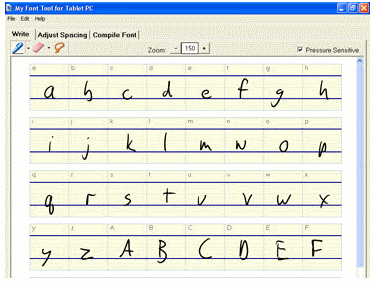 My Font Tool for Tablet PC
File Edit Help
Write Adjust Spacing Compile Font
Zoom: - 150 + Pressure Sensitive
a b c d e f g h
a b c d e f g h
i j k l m n o p
i j k l m n o p
q r s t u v w x
q r s t u v w x
y z A B C D E F
y z A B C D E F